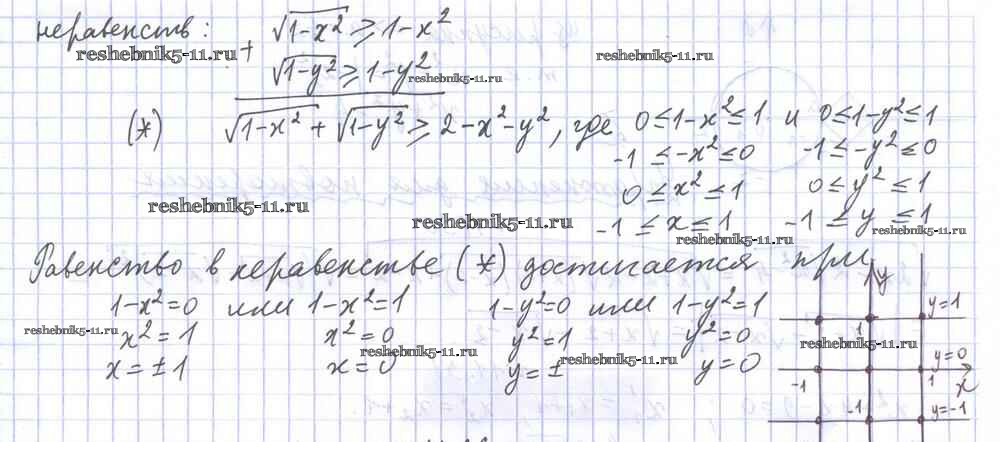 неравенств: √1-x² ⩾ 1-x²
+
√1-y² ⩾ 1-y²
reshebnik5-11.ru reshebnik5-11.ru reshebnik5-11.ru
(*) √1-x² + √1-y² ⩾ 2-x²-y², где 0≤1-x²≤1 и 0≤1-y²≤1
-1≤-x²≤0 -1≤-y²≤0
0≤x²≤1 0≤y²≤1
reshebnik5-11.ru reshebnik5-11.ru
-1≤x≤1 -1≤y≤1
reshebnik5-11.ru reshebnik5-11.ru
Равенство в неравенстве (*) достигается при
y
1-x²=0 или 1-x²=1 1-y²=0 или 1-y²=1 y=1
reshebnik5-11.ru x²=1 x²=0 y²=1 y²=0 1
reshebnik5-11.ru reshebnik5-11.ru
x=±1 x=0 y=± y=0 y=0
-1 1 x
-1 y=-1